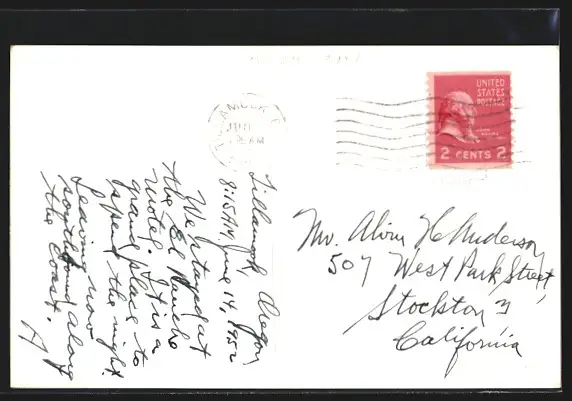 UNITED
STATES
POSTAGE
2 CENTS 2
JUN
AM
Tillamook, Oregon
8:15 AM, June 14, 1952
We stopped at
the El Rancho
motel. It is a
grand place to
spend the night.
Leaving now
south bound along
the coast.
Mr. Alvin H. Anderson
507 West Park Street,
Stockton 3
California